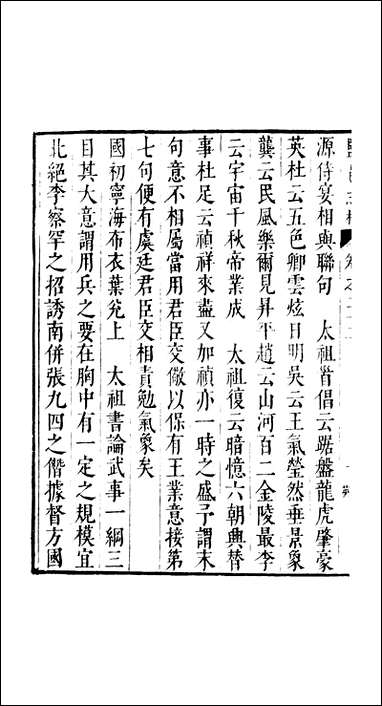 源侍宴相與聯句　太祖首倡云踞盤龍虎肇豪
英杜云五色卿雲炫日明吳云王氣瑩然垂景象
龔云民風樂爾見昇平趙云山河百二金陵最李
云宇宙千秋帝業成　太祖復云暗憶六朝興替
事杜足云禎祥來盡又加禎亦一時之盛予謂末
句意不相屬當用君臣交儆以保有王業意接第
七句便有虞廷君臣交相責勉氣象矣
國初寧海布衣葉兊上　太祖書論武事一綱三
目其大意謂用兵之要在胸中有一定之規模宜
北絕李察罕之招誘南併張九四之僭據督方國